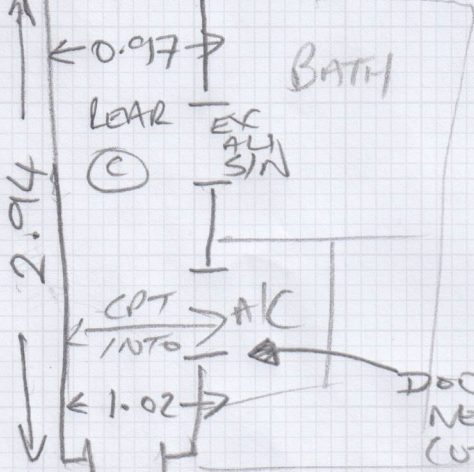 0.97
BATH
REAR
EX
ALI
S/N
C
2.94
CPT
INTO
A/C
1.02
DOO
NE